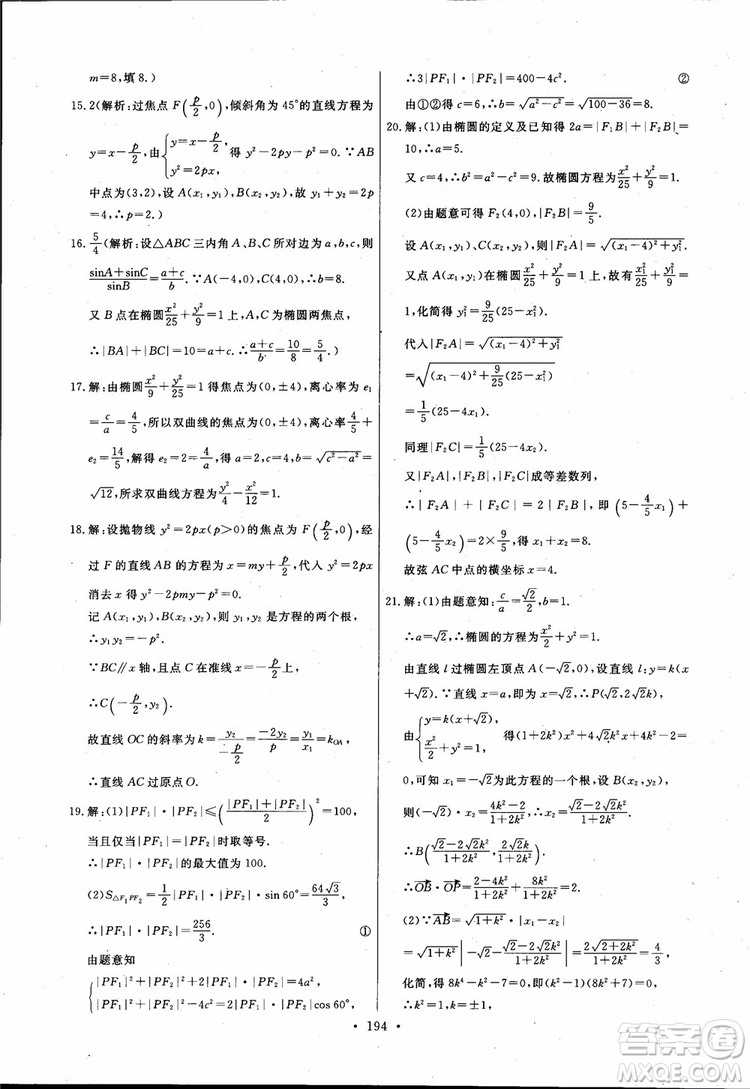 m=8,填8.)
15. 2(解析:过焦点 F(p/2,0),倾斜角为45°的直线方程为
y=x-p/2,由{y=x-p/2, y²=2px 得 y²-2py-p²=0. ∵AB
中点为(3,2),设 A(x₁,y₁),B(x₂,y₂),故 y₁+y₂=2p
=4,∴p=2.)
16. 5/4(解析:设△ABC三内角A、B、C所对边为a,b,c,则
(sinA+sinC)/sinB=(a+c)/b. ∵A(-4,0),C(4,0),∴b=8.
又B点在椭圆x²/25+y²/9=1上,A,C为椭圆两焦点,
∴|BA|+|BC|=10=a+c,∴(a+c)/b=10/8=5/4.)
17. 解:由椭圆x²/9+y²/25=1得焦点为(0,±4),离心率为e₁
=c/a=4/5,所以双曲线的焦点为(0,±4),离心率为4/5+
e₂=14/5,解得e₂=2,所以c=4,a=2,b=√(c²-a²)=
√12,所求双曲线方程为y²/4-x²/12=1.
18. 解:设抛物线 y²=2px(p>0)的焦点为 F(p/2,0),经
过F的直线AB的方程为x=my+p/2,代入y²=2px
消去x得 y²-2pmy-p²=0.
记A(x₁,y₁),B(x₂,y₂),则y₁,y₂是方程的两个根,
∴y₁y₂=-p².
∵BC∥x轴,且点C在准线x=-p/2上,
∴C(-p/2,y₂).
故直线OC的斜率为k=y₂/(-p/2)=-2y₂/p=y₁/x₁=k_OA,
∴直线AC过原点O.
19. 解:(1)|PF₁|·|PF₂|≤((|PF₁|+|PF₂|)/2)²=100,
当且仅当|PF₁|=|PF₂|时取等号.
∴|PF₁|·|PF₂|的最大值为100.
(2)S△F₁PF₂=1/2|PF₁|·|PF₂|·sin60°=64√3/3,
∴|PF₁|·|PF₂|=256/3. ①
由题意知
{|PF₁|²+|PF₂|²+2|PF₁|·|PF₂|=4a²,
|PF₁|²+|PF₂|²-4c²=2|PF₁|·|PF₂|cos60°,
∴3|PF₁|·|PF₂|=400-4c². ②
由①②得c=6,∴b=√(a²-c²)=√(100-36)=8.
20. 解:(1)由椭圆的定义及已知得2a=|F₁B|+|F₂B|=
10,∴a=5.
又c=4,∴b²=a²-c²=9. 故椭圆方程为x²/25+y²/9=1.
(2)由题意可得F₂(4,0),|F₂B|=9/5.
设A(x₁,y₁),C(x₂,y₂),则|F₂A|=√((x₁-4)²+y₁²).
又点A(x₁,y₁)在椭圆x²/25+y²/9=1上,故有x₁²/25+y₁²/9=
1,化简得y₁²=9/25(25-x₁²).
代入|F₂A|=√((x₁-4)²+y₁²)
=√((x₁-4)²+9/25(25-x₁²))
=1/5(25-4x₁).
同理|F₂C|=1/5(25-4x₂).
又|F₂A|,|F₂B|,|F₂C|成等差数列,
∴|F₂A|+|F₂C|=2|F₂B|,即(5-4/5x₁)+
(5-4/5x₂)=2×9/5,得x₁+x₂=8.
故弦AC中点的横坐标x=4.
21. 解:(1)由题意知:c/a=√2/2,b=1.
∴a=√2,∴椭圆的方程为x²/2+y²=1.
由直线l过椭圆左顶点A(-√2,0),设直线l:y=k(x
+√2). 又直线x=a,即x=√2,∴P(√2,2√2k).
由{y=k(x+√2), x²/2+y²=1, 得(1+2k²)x²+4√2k²x+4k²-2=
0,可知x₁=-√2为此方程的一个根,设B(x₂,y₂),
则(-√2)·x₂=(4k²-2)/(1+2k²),∴x₂=(√2-2√2k²)/(1+2k²).
∴B((√2-2√2k²)/(1+2k²),2√2k/(1+2k²)).
∴OB·OP=(2-4k²)/(1+2k²)+8k²/(1+2k²)=2.
(2)∵AB=√(1+k²)·|x₁-x₂|
=√(1+k²)|-√2-(√2-2√2k²)/(1+2k²)|=2√(2+2k²)/(1+2k²)=4/3,
化简,得8k⁴-k²-7=0,即(k²-1)(8k²+7)=0,
∴k²=1,k=±1,
194
答案圈
MXQE.COM